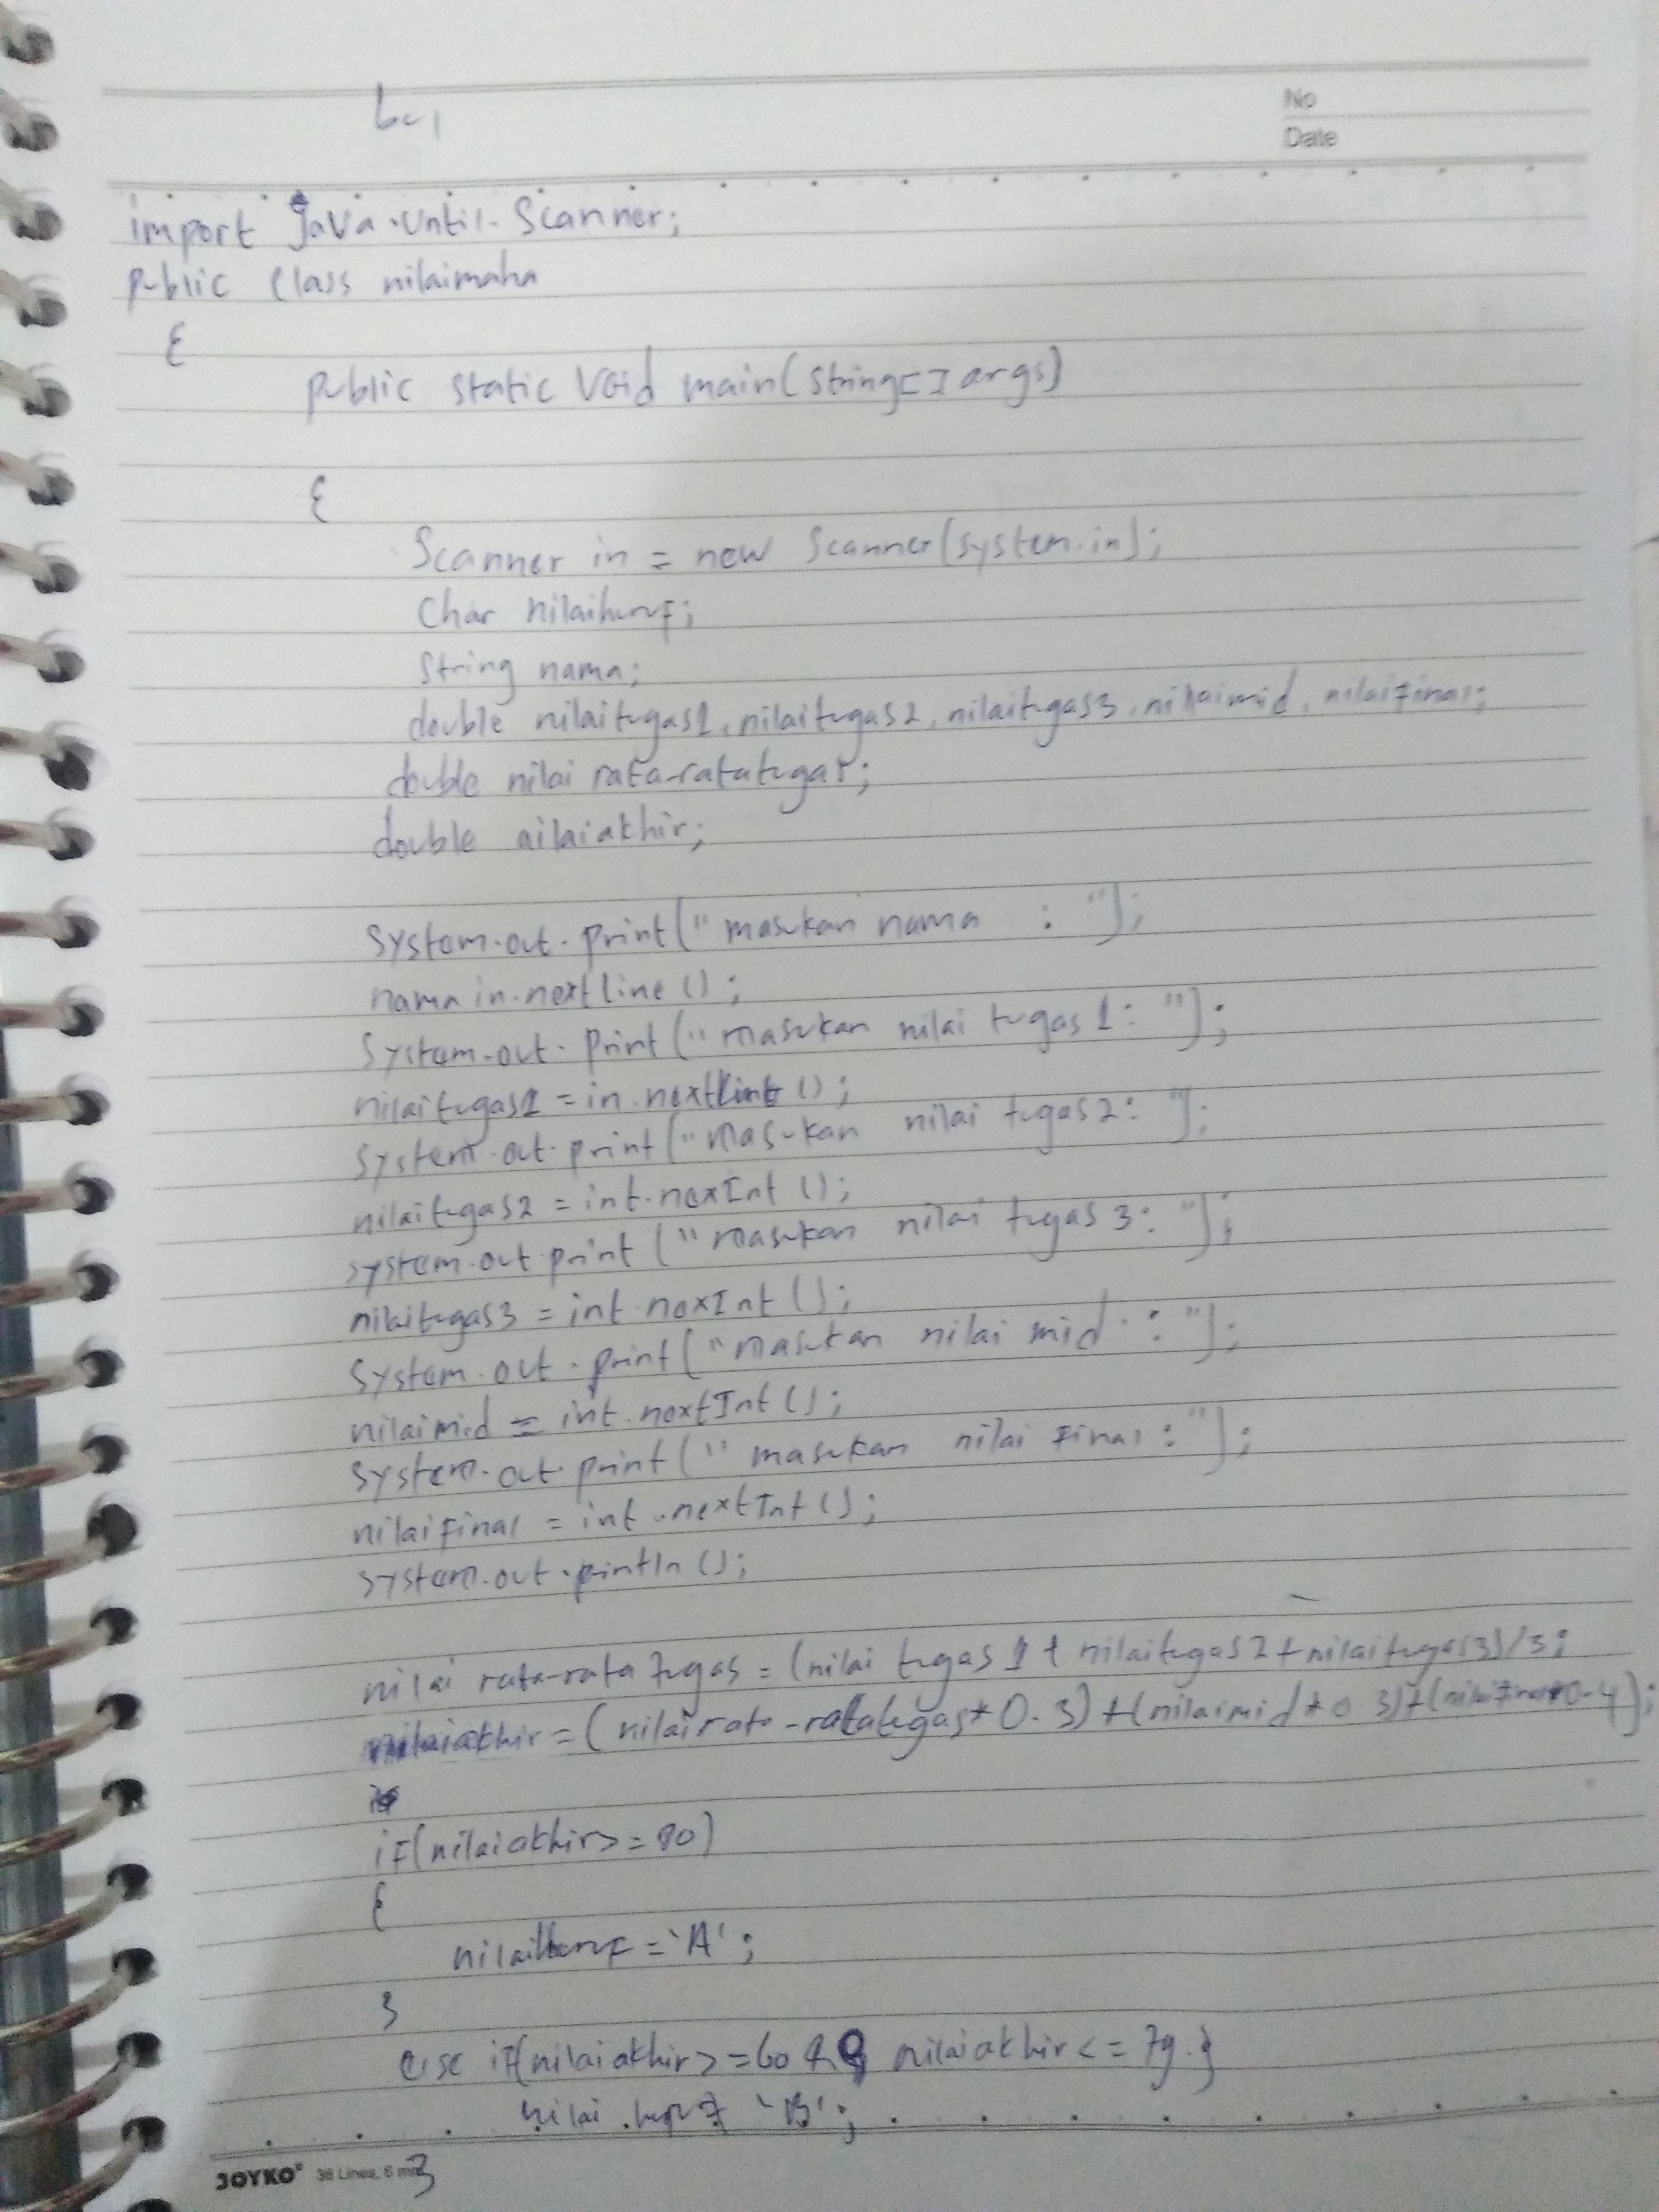 bc1
No
Date
import Java.Until.Scanner;
public Class nilaimaha
{
public static Void main(String[] args)
{
Scanner in = new Scanner(system.in);
Char nilaihuruf;
String nama;
double nilaitugas1, nilaitugas2, nilaitugas3, nilaimid, nilaifinal;
double nilai rata-ratatugas;
double nilaiakhir;
System.out.print("masukan nama : ");
nama in.nextline();
System.out.print("masukan nilai tugas1: ");
nilaitugas1 = in.
System.out.print("masukan nilai tugas2: ");
nilaitugas2 = int.nexInt();
system.out.print("masukan nilai tugas3: ");
nilaitugas3 = int.nexInt();
System.out.print("masukan nilai mid : ");
nilaimid = int.nextInt();
System.out.print("masukan nilai final : ");
nilaifinal = int.nextInt();
system.out.println();
nilai rata-rata tugas = (nilai tugas1 + nilaitugas2 + nilaitugas3)/3;
nilaiakhir = (nilairata-ratatugas*0.3)+(nilaimid*0.3)+(nilaifinal*0.4);
if(nilaiakhir>=80)
{
nilaihuruf = 'A';
}
else if(nilaiakhir>=60 && nilaiakhir<=79.}
nilai 'B';
}
JOYKO 36 Lines, 6 mm